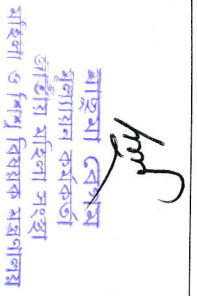 মাছুমা বেগম
মূল্যায়ন কর্মকর্তা
জাতীয় মহিলা সংস্থা
মহিলা ও শিশু বিষয়ক মন্ত্রণালয়